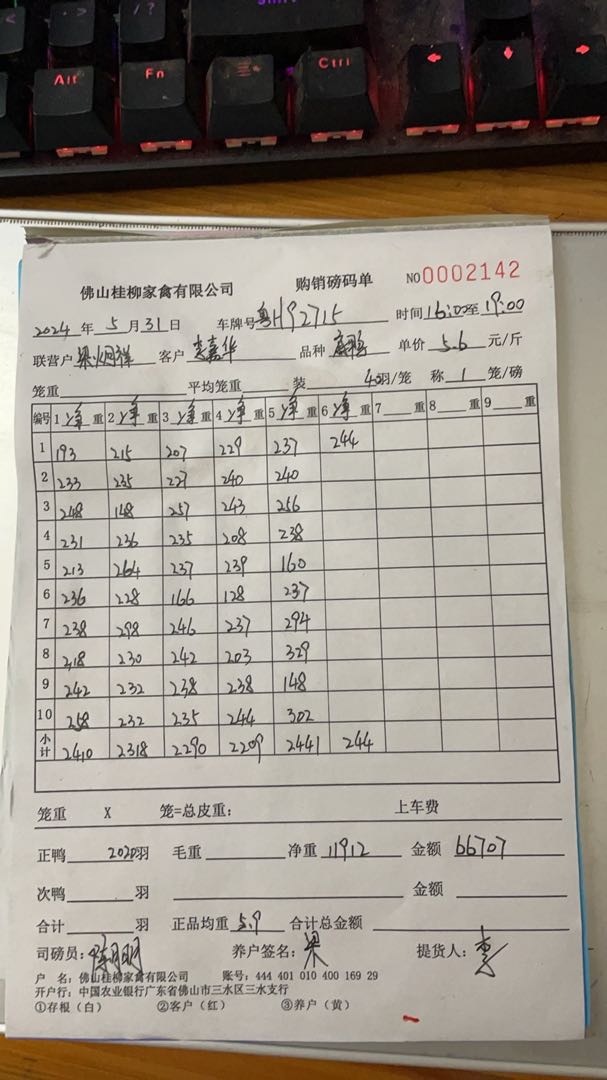 Alt Fn Ctrl
佛山桂柳家禽有限公司 购销磅码单 NO0002142
2024年5月31日 车牌号粤H92715 时间16:00至19:00
联营户 客户李嘉华 品种 单价5.6元/斤
笼重 平均笼重 装40羽/笼 称1笼/磅
编号 1净重 2净重 3净重 4净重 5净重 6净重 7重 8重 9重
1 193 215 207 229 237 244
2 233 235 227 240 240
3 248 148 257 243 256
4 231 236 235 208 238
5 213 264 237 239 160
6 236 228 166 128 237
7 238 298 246 237 294
8 218 230 242 203 329
9 242 232 238 238 148
10 258 232 235 244 302
小计 2410 2318 2290 2209 2441 244
笼重 X 笼=总皮重: 上车费
正鸭2020羽 毛重 净重11912 金额66707
次鸭 羽 金额
合计 羽 正品均重5.9 合计总金额
司磅员:陈明明 养户签名:梁 提货人:李
户 名:佛山桂柳家禽有限公司 账号:444 401 010 400 169 29
开户行:中国农业银行广东省佛山市三水区三水支行
①存根(白) ②客户(红) ③养户(黄)